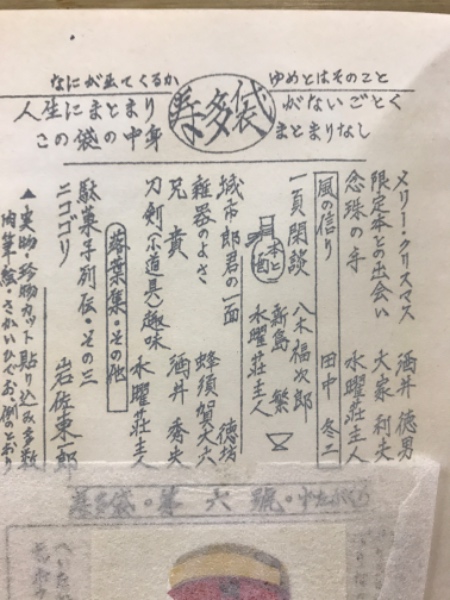 なにが出てくるか
人生にまとまり
この袋の中身
寿多袋
ゆめとはそのこと
がないごとく
まとまりなし
メリー・クリスマス 酒井徳男
限定本との出会い 大家利夫
念珠の手 水曜荘主人
風の信り 田中冬二
一頁閑談 八木福次郎
本と酒 新島繁
水曜荘主人
城市郎君の一面 徳坊
雑器のよさ 蜂須賀大六
兄貴 酒井秀夫
刀剣(小道具)趣味 水曜荘主人
落葉集・その他
駄菓子列伝・その三
ニコゴリ 岩佐東一郎
▲実物・珍物カット貼り込み多数
肉筆・絵・さかいひでお・例のとおり
寿多袋・第六號